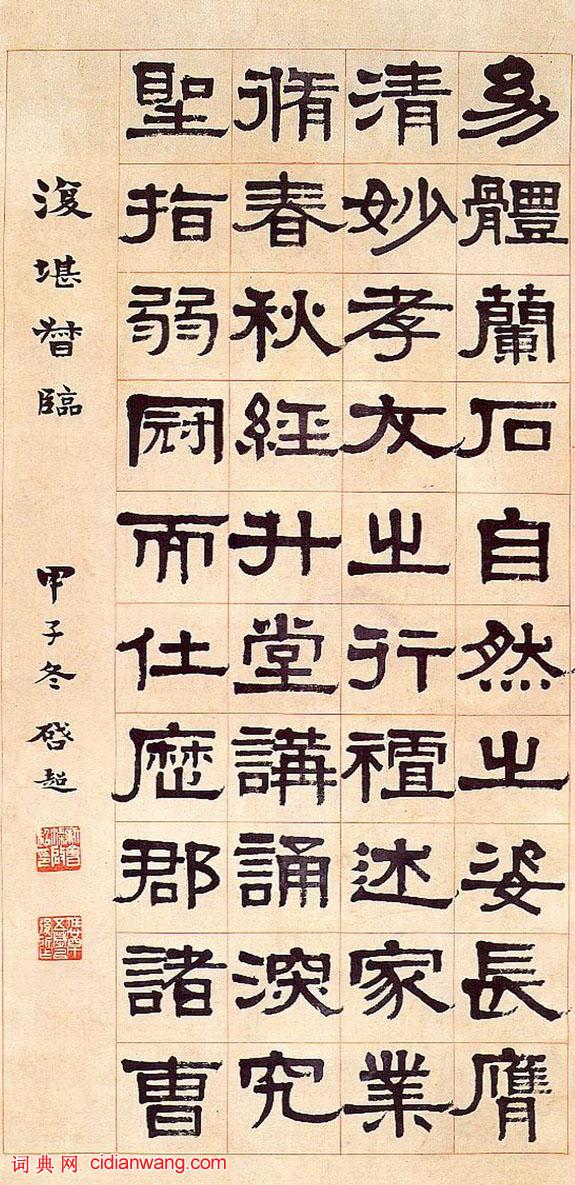 幼體蘭石自然之姿長膺
清妙孝友之行襢述家業
脩春秋經升堂講誦深究
聖指弱冠而仕歷郡諸曹
復堪督臨 甲子冬 啓超
新會梁啟超印
词典网 cidianwang.com